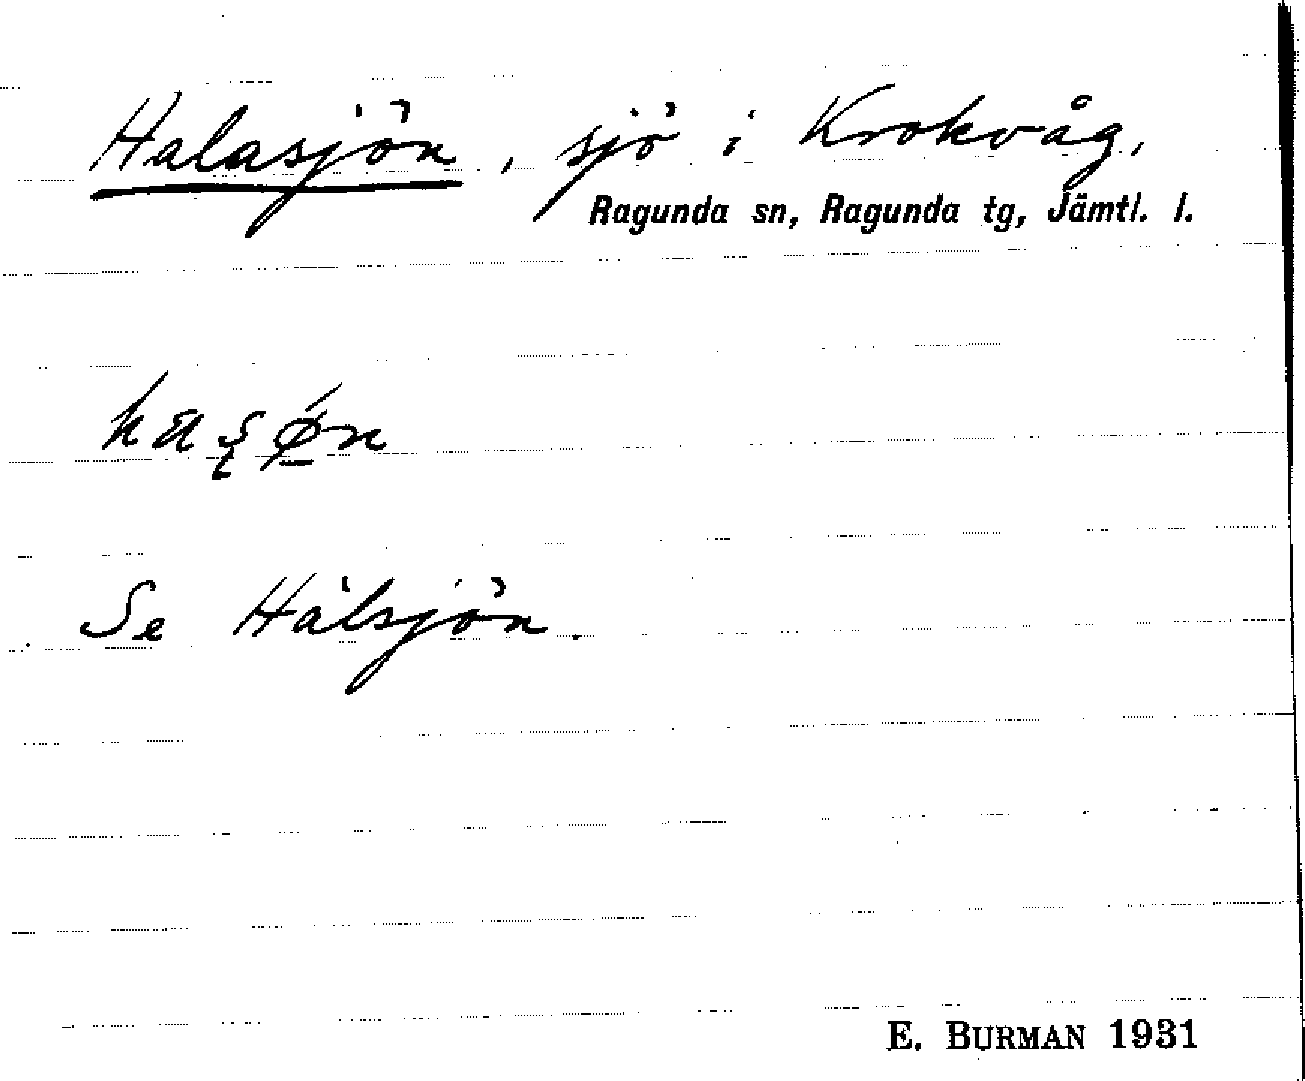 Halasjön, sjö i Krokvåg,
Ragunda sn, Ragunda tg, Jämtl. l.
Se Hälsjön.
E. BURMAN 1931